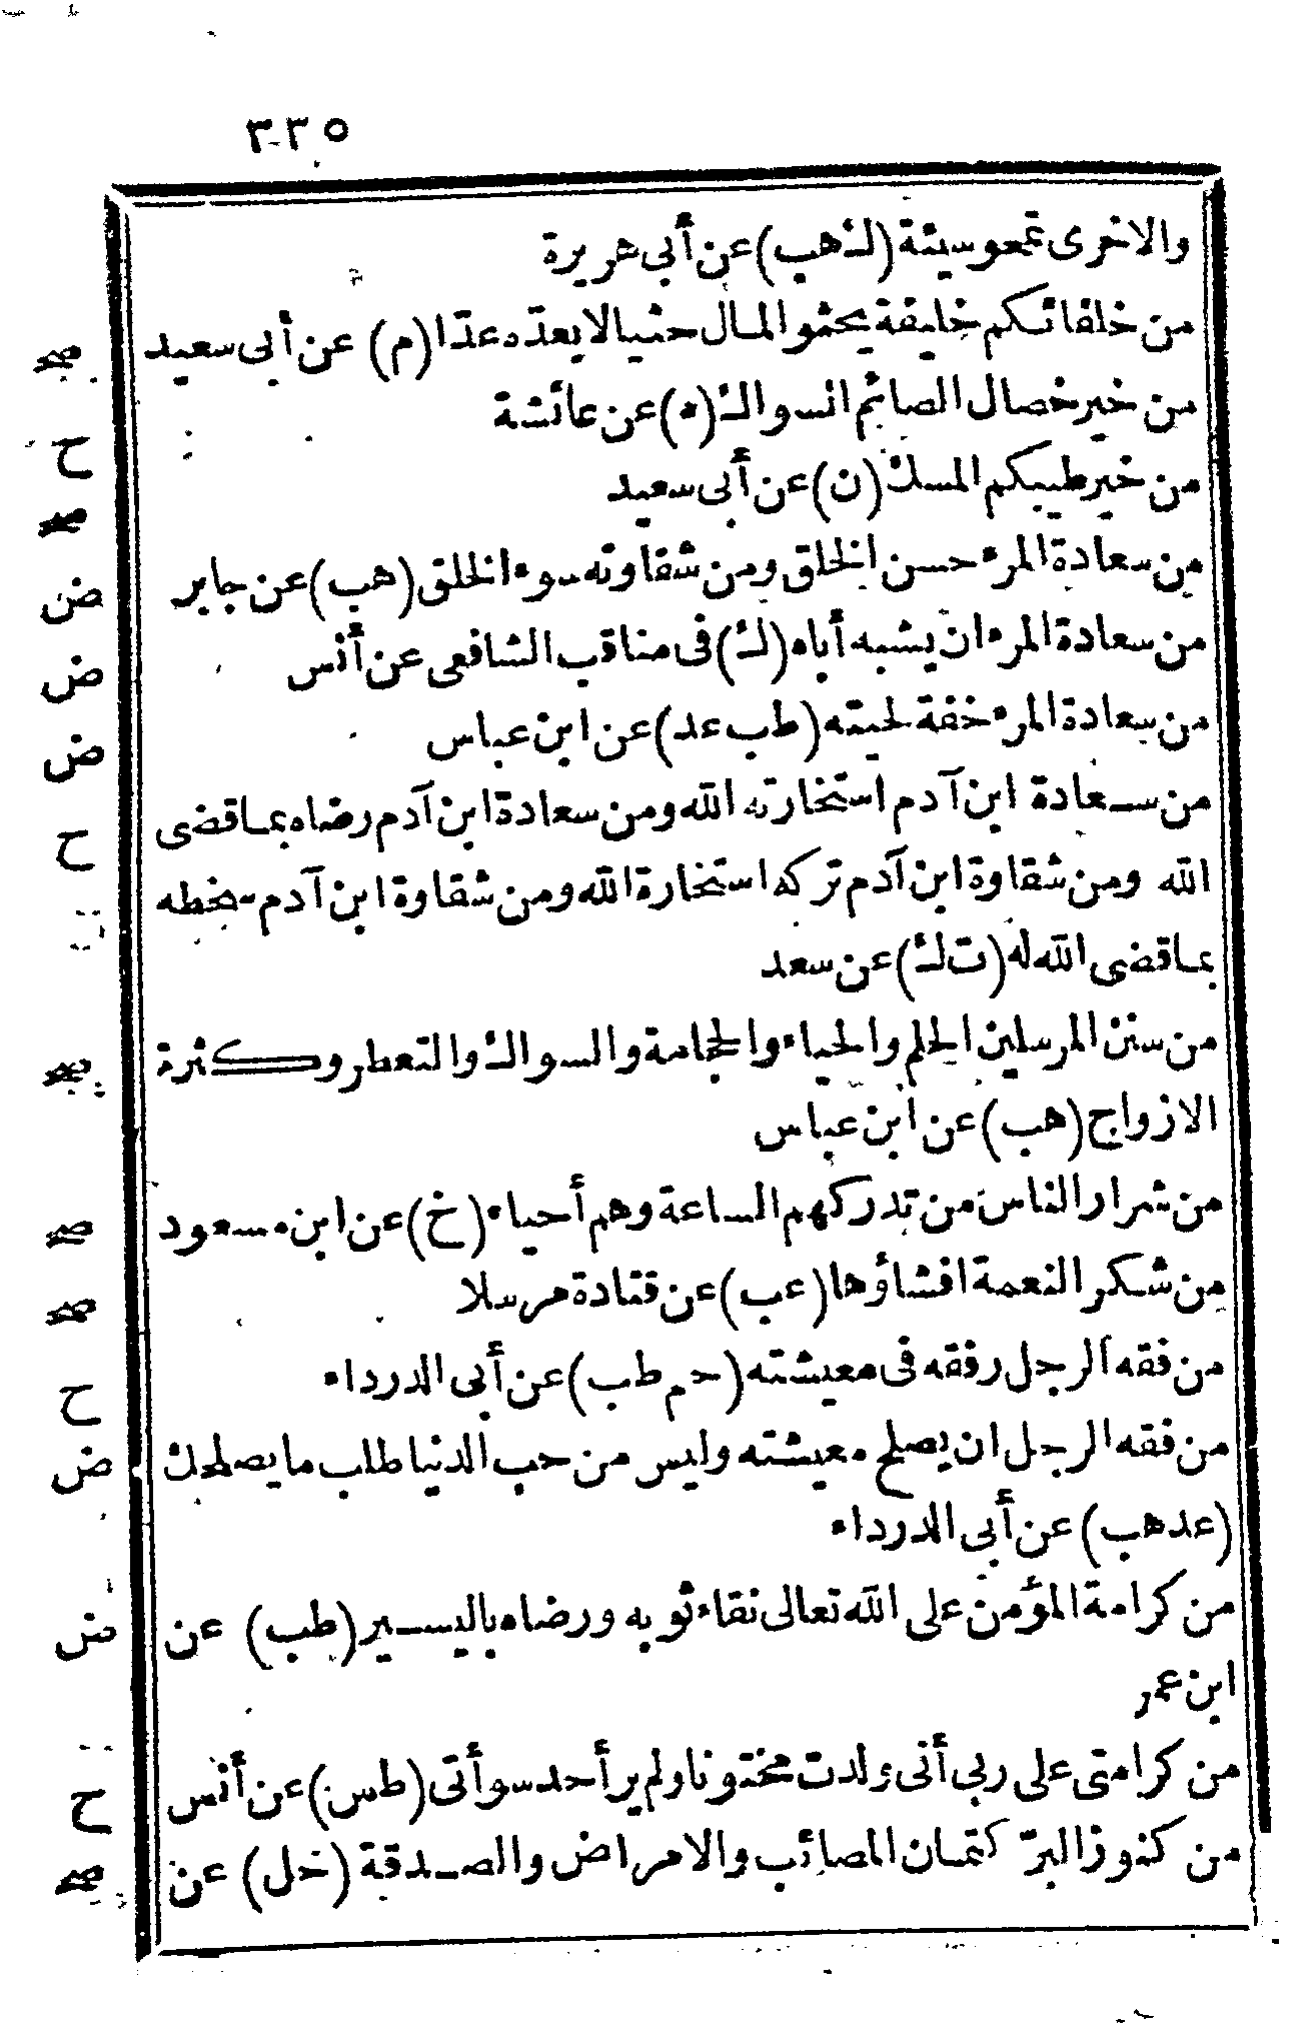 ٣٣٥
والاخرى تمحو سيئة (ك هب) عن أبى هريرة
من خلفائكم خليفة يحثو المال حثيا لا يعدّه عدّا (م) عن أبى سعيد
صح
من خير خصال الصائم السواك (ه) عن عائشة
ح
من خير طيبكم المسك (ن) عن أبى سعيد
صح
من سعادة المرء حسن الخلق ومن شقاوته سوء الخلق (هب) عن جابر
ض
من سعادة المرء ان يشبه أباه (ك) فى مناقب الشافعى عن أنس
ض
من سعادة المرء خفة لحيته (طب عد) عن ابن عباس
ض
من سعادة ابن آدم استخارته الله ومن سعادة ابن آدم رضاه بما قضى
ح
الله ومن شقاوة ابن آدم تركه استخارة الله ومن شقاوة ابن آدم سخطه
بما قضى الله له (ت ك) عن سعد
من سنن المرسلين الحلم والحياء والحجامة والسواك والتعطر وكثرة
صح
الازواج (هب) عن ابن عباس
من شرار الناس من تدركهم الساعة وهم أحياء (خ) عن ابن مسعود
صح
من شكر النعمة افشاؤها (عب) عن قتادة مرسلا
صح
من فقه الرجل رفقه فى معيشته (حم طب) عن أبى الدرداء
ح
من فقه الرجل ان يصلح معيشته وليس من حب الدنيا طلب ما يصلحك
ض
(عد هب) عن أبى الدرداء
من كرامة المؤمن على الله تعالى نقاء ثوبه ورضاه باليسير (طب) عن
ض
ابن عمر
من كرامتى على ربى أنى ولدت مختونا ولم ير أحد سوأتى (طس) عن أنس
ح
من كنوز البرّ كتمان المصائب والامراض والصدقة (حل) عن
صح